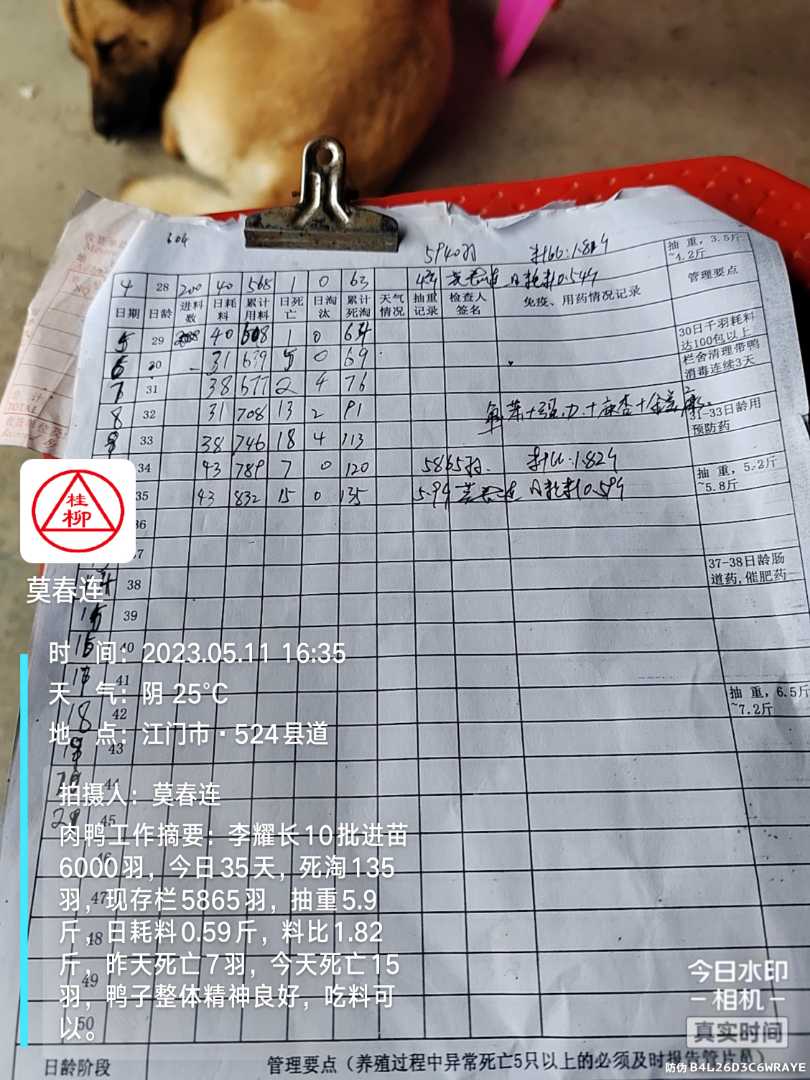 604
5940羽 料比:1.82斤
抽重，3.5斤~4.2斤
4 28 200 40 565 1 0 63
日期 日龄 进料数 日耗料 累计用料 日死亡 日淘汰 累计死淘 天气情况 抽重记录 检查人签名 免疫、用药情况记录 管理要点
5 29 40 608 1 0 64
30日千羽耗料达100包以上
6 30 31 639 5 0 69
栏舍清理带鸭消毒连续3天
7 31 38 677 2 4 76
8 32 31 708 13 2 91
31-33日龄用预防药
9 33 38 746 18 4 113
34 43 789 7 0 120 5865羽. 料比:1.82斤
抽重，5.2斤~5.8斤
35 43 832 15 0 135 5.9斤 莫春连 日耗料0.59斤
36
37
37-38日龄肠道药,催肥药
38
15 39
16 40
17 41
18 42
抽重，6.5斤~7.2斤
19 43
44
45
46
47
48
49
50
日龄阶段 管理要点（养殖过程中异常死亡5只以上的必须及时报告管片员）
桂柳
莫春连
时 间：2023.05.11 16:35
天 气：阴 25℃
地 点：江门市·524县道
拍摄人：莫春连
肉鸭工作摘要：李耀长10批进苗
6000羽，今日35天，死淘135
羽，现存栏5865羽，抽重5.9
斤，日耗料0.59斤，料比1.82
斤，昨天死亡7羽，今天死亡15
羽，鸭子整体精神良好，吃料可
以。
今日水印
相机
真实时间
防伪 B4L26D3C6WRAYE